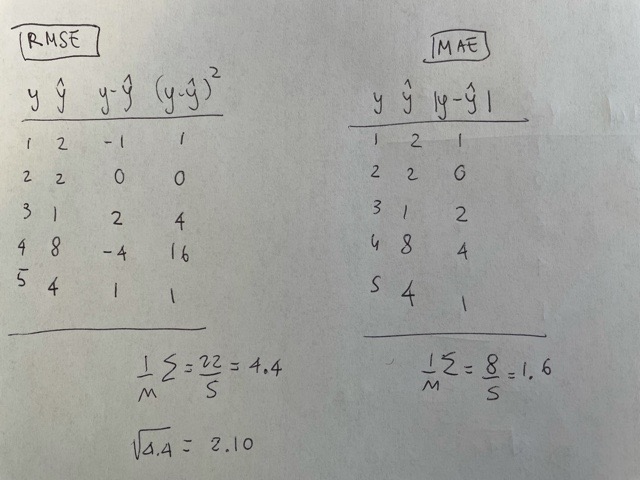 RMSE
y ŷ y-ŷ (y-ŷ)²
1 2 -1 1
2 2 0 0
3 1 2 4
4 8 -4 16
5 4 1 1
1/m Σ = 22/5 = 4.4
√4.4 = 2.10
MAE
y ŷ |y-ŷ|
1 2 1
2 2 0
3 1 2
4 8 4
5 4 1
1/m Σ = 8/5 = 1.6